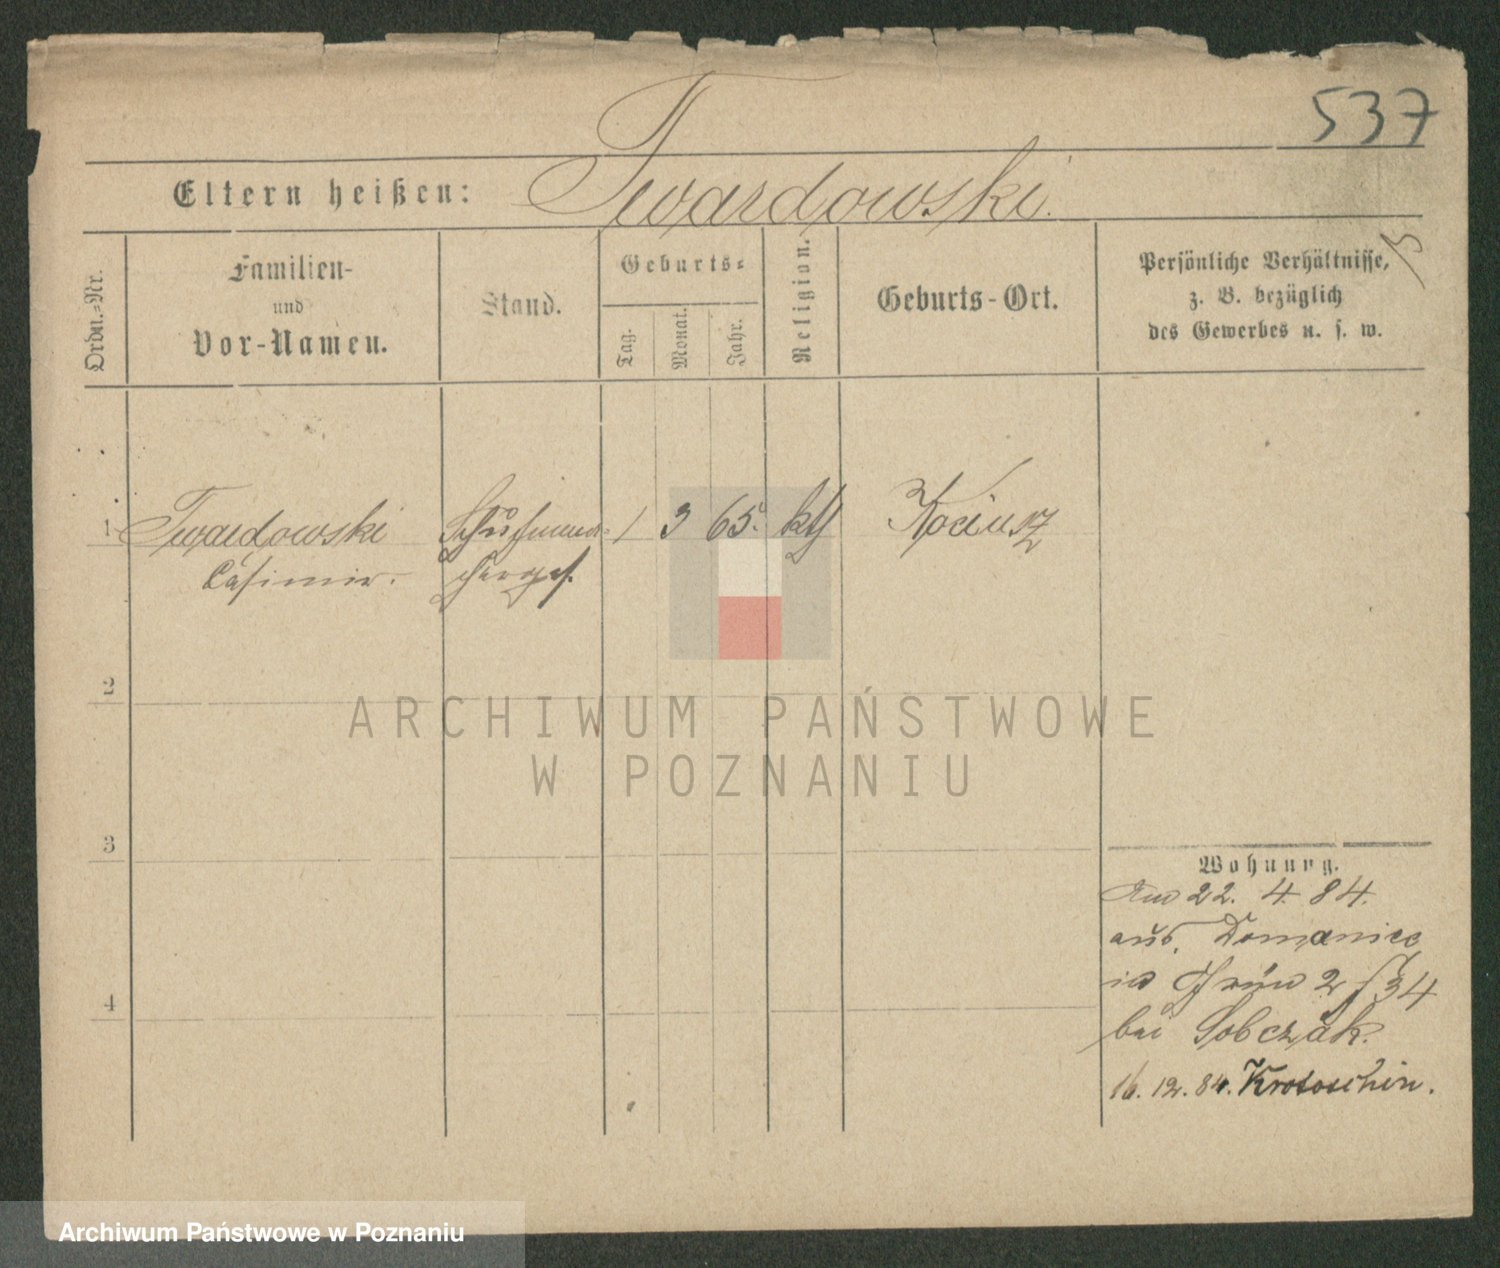 537
Eltern heißen: Twardowski.
15
Ordn.=Nr.
Familien-
und
Vor-Namen.
Stand.
Geburts=
Tag.
Monat.
Jahr.
Religion.
Geburts-Ort.
Persönliche Verhältnisse,
z. B. bezüglich
des Gewerbes u. s. w.
1 Twardowski Schuhma= 1 3 65. kth
Casimir. cherges.
2
3
4
Wohnung.
22. 4. 84.
aus. Domaniec
in Grün 2
bei Sobczak.
16. 12. 84. Krotoschin.
ARCHIWUM PAŃSTWOWE
W POZNANIU
Archiwum Państwowe w Poznaniu